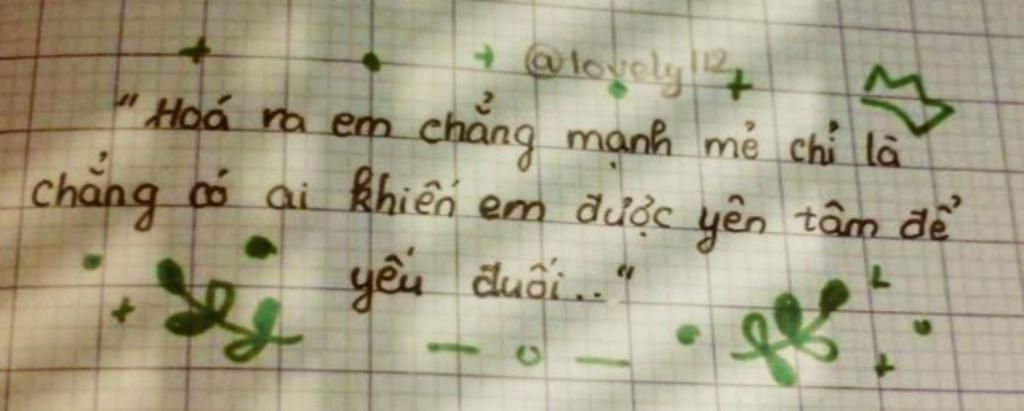 @lovely112
"Hoá ra em chẳng mạnh mẻ chỉ là
chẳng có ai khiến em được yên tâm để
yếu đuối.."